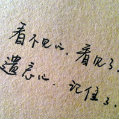 看不见心，看见了，
遗忘心，记住了。